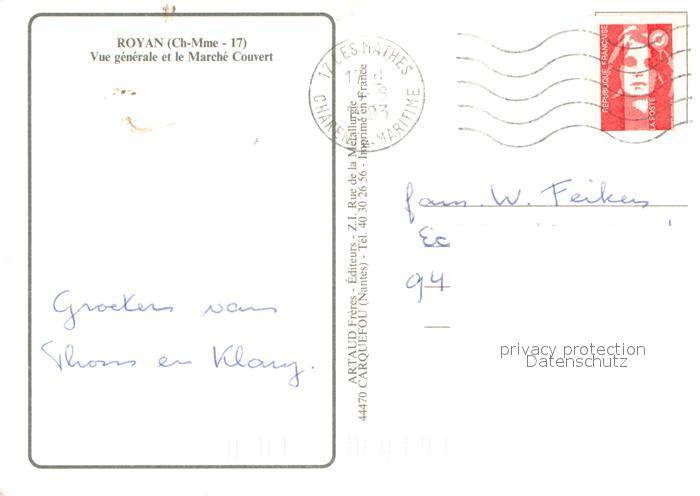 ROYAN (Ch-Mme - 17)
Vue générale et le Marché Couvert
17 LES MATHES
CHARENTE-MARITIME
RÉPUBLIQUE FRANÇAISE
LA POSTE
ARTAUD Frères - Éditeurs - Z.I. Rue de la Métallurgie
44470 CARQUEFOU (Nantes) - Tél. 40 30 26 56 - Imprimé en France
fam. W. Feikens
Ec
94
Groeten van
Thom en Klary.
privacy protection
Datenschutz